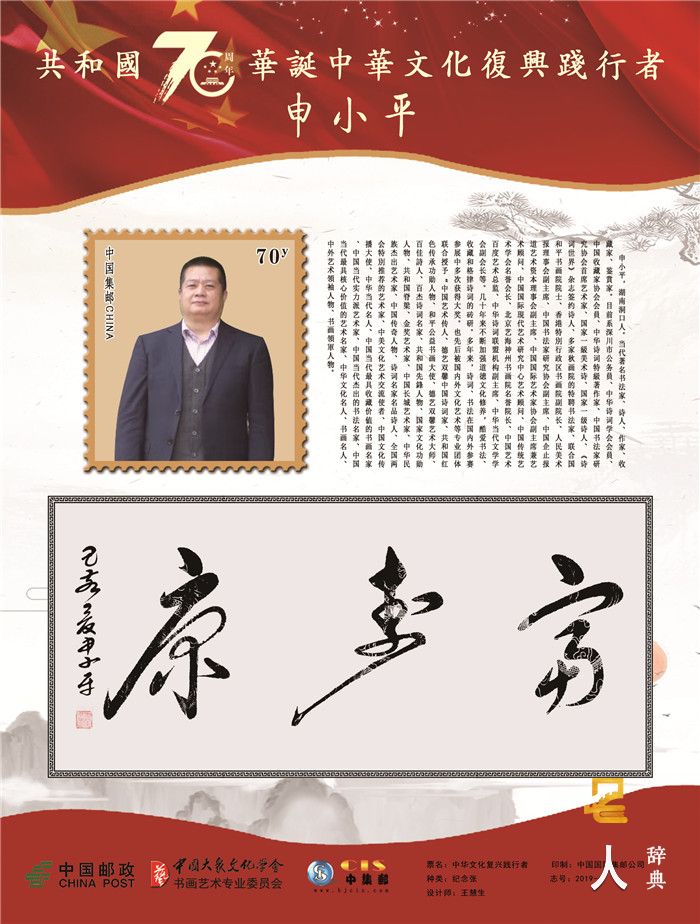 共和國70周年華誕中華文化復興踐行者
申小平
中国集邮CHINA
70y
申小平，湖南洞口人，当代著名书法家、诗人、作家、收
藏家、鉴赏家。目前系深川市公务员、中华诗词学会会员、
中国收藏家协会会员、中华诗词特级著作家、中国书法家研
究协会首席艺术家、国家一级美术诗、国家一级诗人、《诗
词世界》杂志签约诗人、多家秋画院的特聘书法家、联合国
和平书画院院士、香港特别行政区书画院副院长、人民美术
报理事会副主席、中国书法家研究协会副主席、中国企止报
道艺术资本理事会副主席、中国国际艺术家协会副主席兼艺
术顾问、中国国际现代艺术研究中心艺术顾问、中国传统艺
术学会名誉会长、北京艺海神州书画院名誉院长、中国艺术
百度艺术总监、中华诗词联盟机构副主席、中华当代文学学
会副会长等。几十年来不断加强道德文化修养，酷爱书法、
收藏和格律诗词的砖研，多年来，诗词、书法在国内外参赛
参展中多次获得大奖，也先后被国内外文化艺术等专业团体
联合授予"中国艺术传人、德艺双馨中国诗词家、共和国红
色传承功勋人物、和平公益书画大使、德艺双馨艺术大师、
百佳诗人、百杰诗词名家、共和国先鋒人物、国家文化功勋
人物、共和国脊梁、金奖艺术家、中国长城艺术家、中华民
族杰出艺术家、中国传奇人物、诗词名家名品诗人、全国两
会特别推荐的艺术家、中美文化艺术交流使者、中国文化传
播大使、中华当代名人、中国当代最具收藏价值的书画名家
、中国当代实力派艺术家、中国当代杰出的书法名家、中国
当代最具核心价值的艺术名家、中华文化名人、书画名人、
中外艺术领袖人物、书画领軍人物。
富寿康
己亥夏申小平
中国邮政
CHINA POST
中国大众文化学会
书画艺术专业委员会
CIS
中集邮
www.bjcis.com
票名：中华文化复兴践行者
种类：纪念张
设计师：王慧生
印制：中国国际集邮公司
志号：2019-
人
辞典